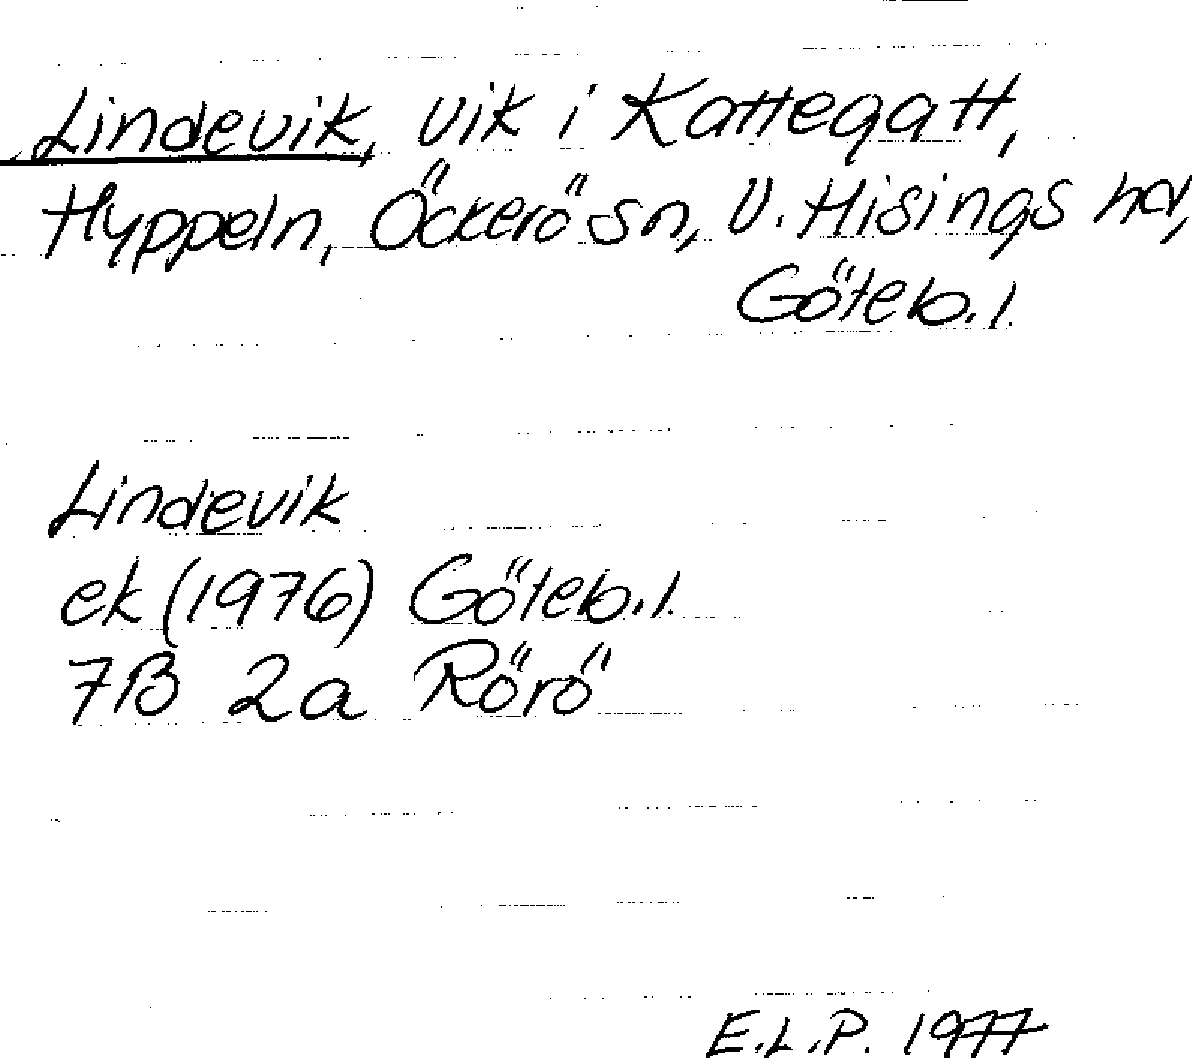 Lindevik, vik i Kattegatt,
Hyppeln, Öckerö sn, V. Hisings hd,
Göteb. l.
Lindevik
ek (1976) Göteb. l.
7B 2a Rörö
E.L.P. 1977